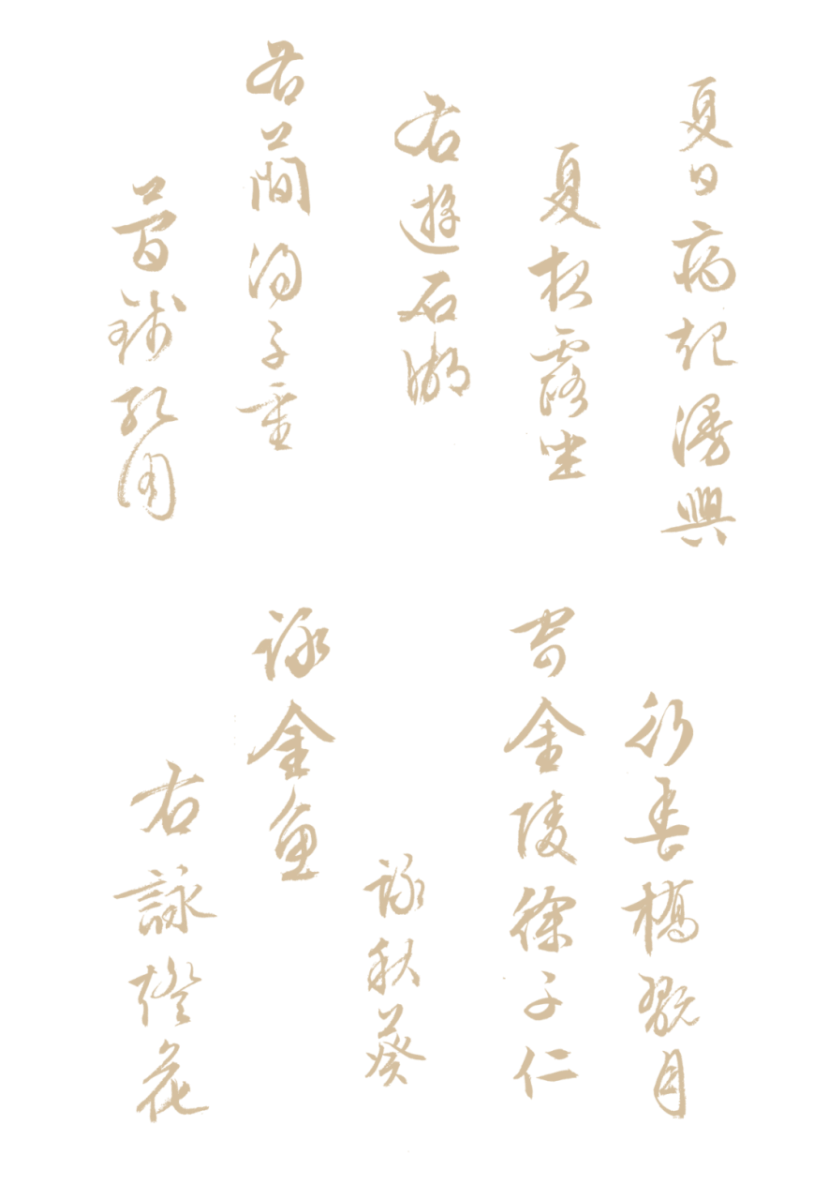 夏日病起漫興
夏夜露坐
右遊石湖
右蕳湯子重
孔周
行春橋翫月
寄金陵徐子仁
詠秋葵
詠金魚
右詠燈花